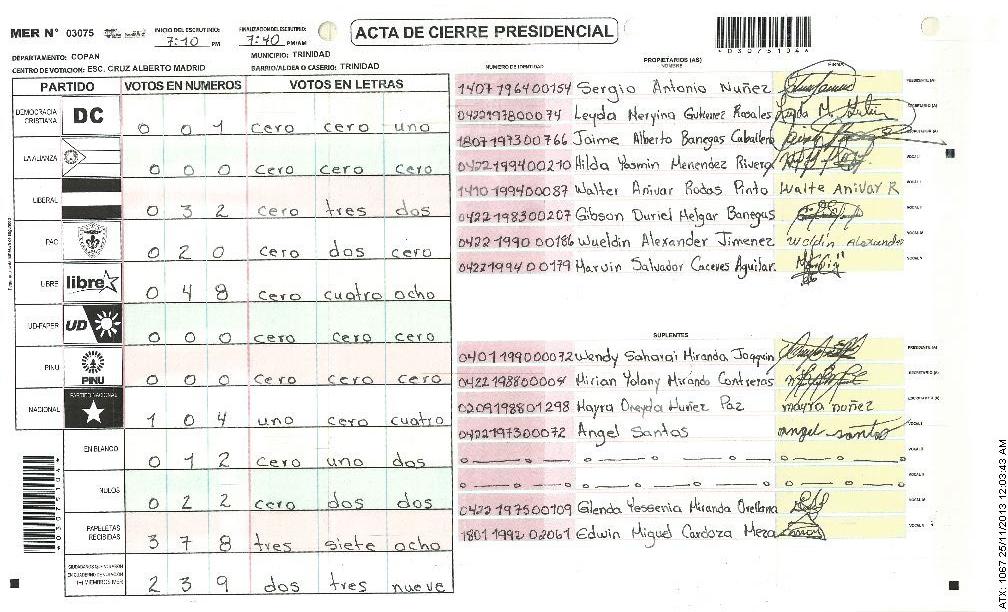 MER N° 03075
INICIO DEL ESCRUTINIO: 7:10 PM
FINALIZACION DEL ESCRUTINIO: 7:40 PM/AM
ACTA DE CIERRE PRESIDENCIAL
DEPARTAMENTO: COPAN
MUNICIPIO: TRINIDAD
CENTRO DE VOTACION: ESC. CRUZ ALBERTO MADRID
BARRIO/ALDEA O CASERIO: TRINIDAD
PARTIDO VOTOS EN NUMEROS VOTOS EN LETRAS
DEMOCRACIA CRISTIANA DC 0 0 1 cero cero uno
LA ALIANZA 0 0 0 cero cero cero
LIBERAL 0 3 2 cero tres dos
PAC 0 2 0 cero dos cero
LIBRE libre 0 4 8 cero cuatro ocho
UD-FAPER UD 0 0 0 cero cero cero
PINU PINU 0 0 0 cero cero cero
NACIONAL PARTIDO NACIONAL 1 0 4 uno cero cuatro
EN BLANCO 0 1 2 cero uno dos
NULOS 0 2 2 cero dos dos
PAPELETAS RECIBIDAS 3 7 8 tres siete ocho
CIUDADANOS QUE VOTARON 2 3 9 dos tres nueve
PROPIETARIOS (AS)
NUMERO DE IDENTIDAD NOMBRE FIRMA
1407196400154 Sergio Antonio Nuñez
0422197800074 Leyda Neryina Gutierrez Rosales
1807197300766 Jaime Alberto Banegas Caballero
0422199400210 Hilda Yasmin Menendez Rivera
1410199400087 Walter Anivar Rodas Pinto Walte Anivar R
0422198300207 Gibson Duriel Melgar Banegas
0422199000186 Wueldin Alexander Jimenez Weldin Alexander
0422199400179 Marvin Salvador Caceves Aguilar
SUPLENTES
0401199000072 Wendy Saharai Miranda Joaquin
0422198800004 Mirian Yolany Miranda Contreras
0209198801298 Mayra Oneyda Nuñez Paz mayra nuñez
0422197300072 Angel Santos angel santos
0422197500109 Glenda Yessenia Miranda Orellana
1801199202061 Edwin Miguel Cardoza Meza
ATX: 1067 25/11/2013 12:03:43 AM